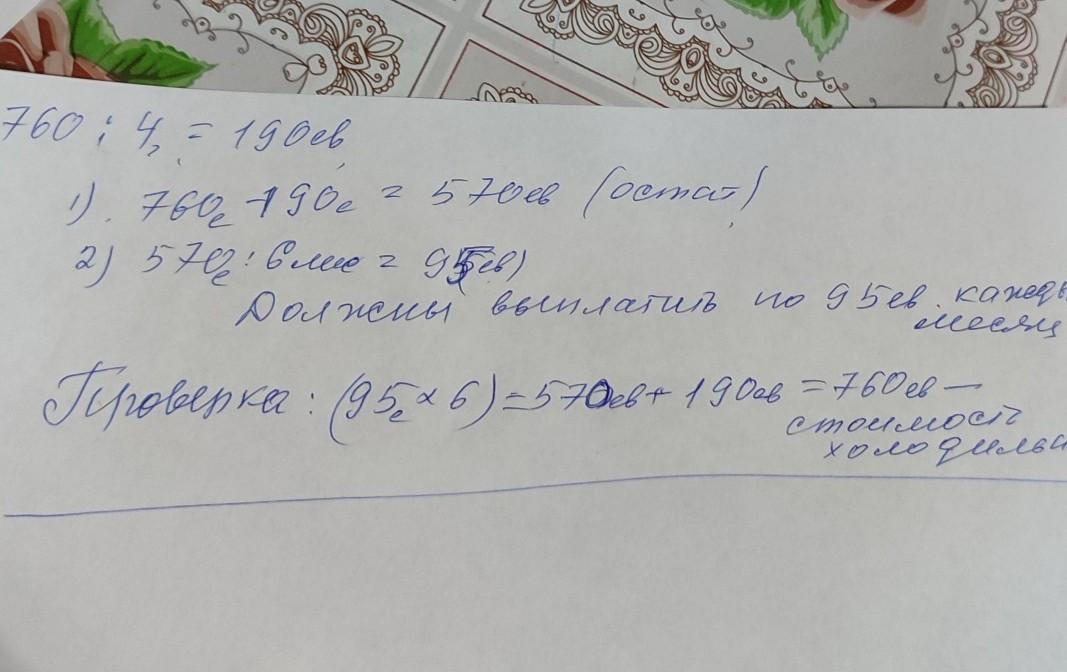 760 : 4 = 190ев
1). 760е - 190е = 570ев (остат)
2) 570е : 6 мес = 95ев)
Должны выплатить по 95ев. кажды
месяц
Проверка: (95е х 6) = 570ев + 190ев = 760ев —
стоимость
холодильн